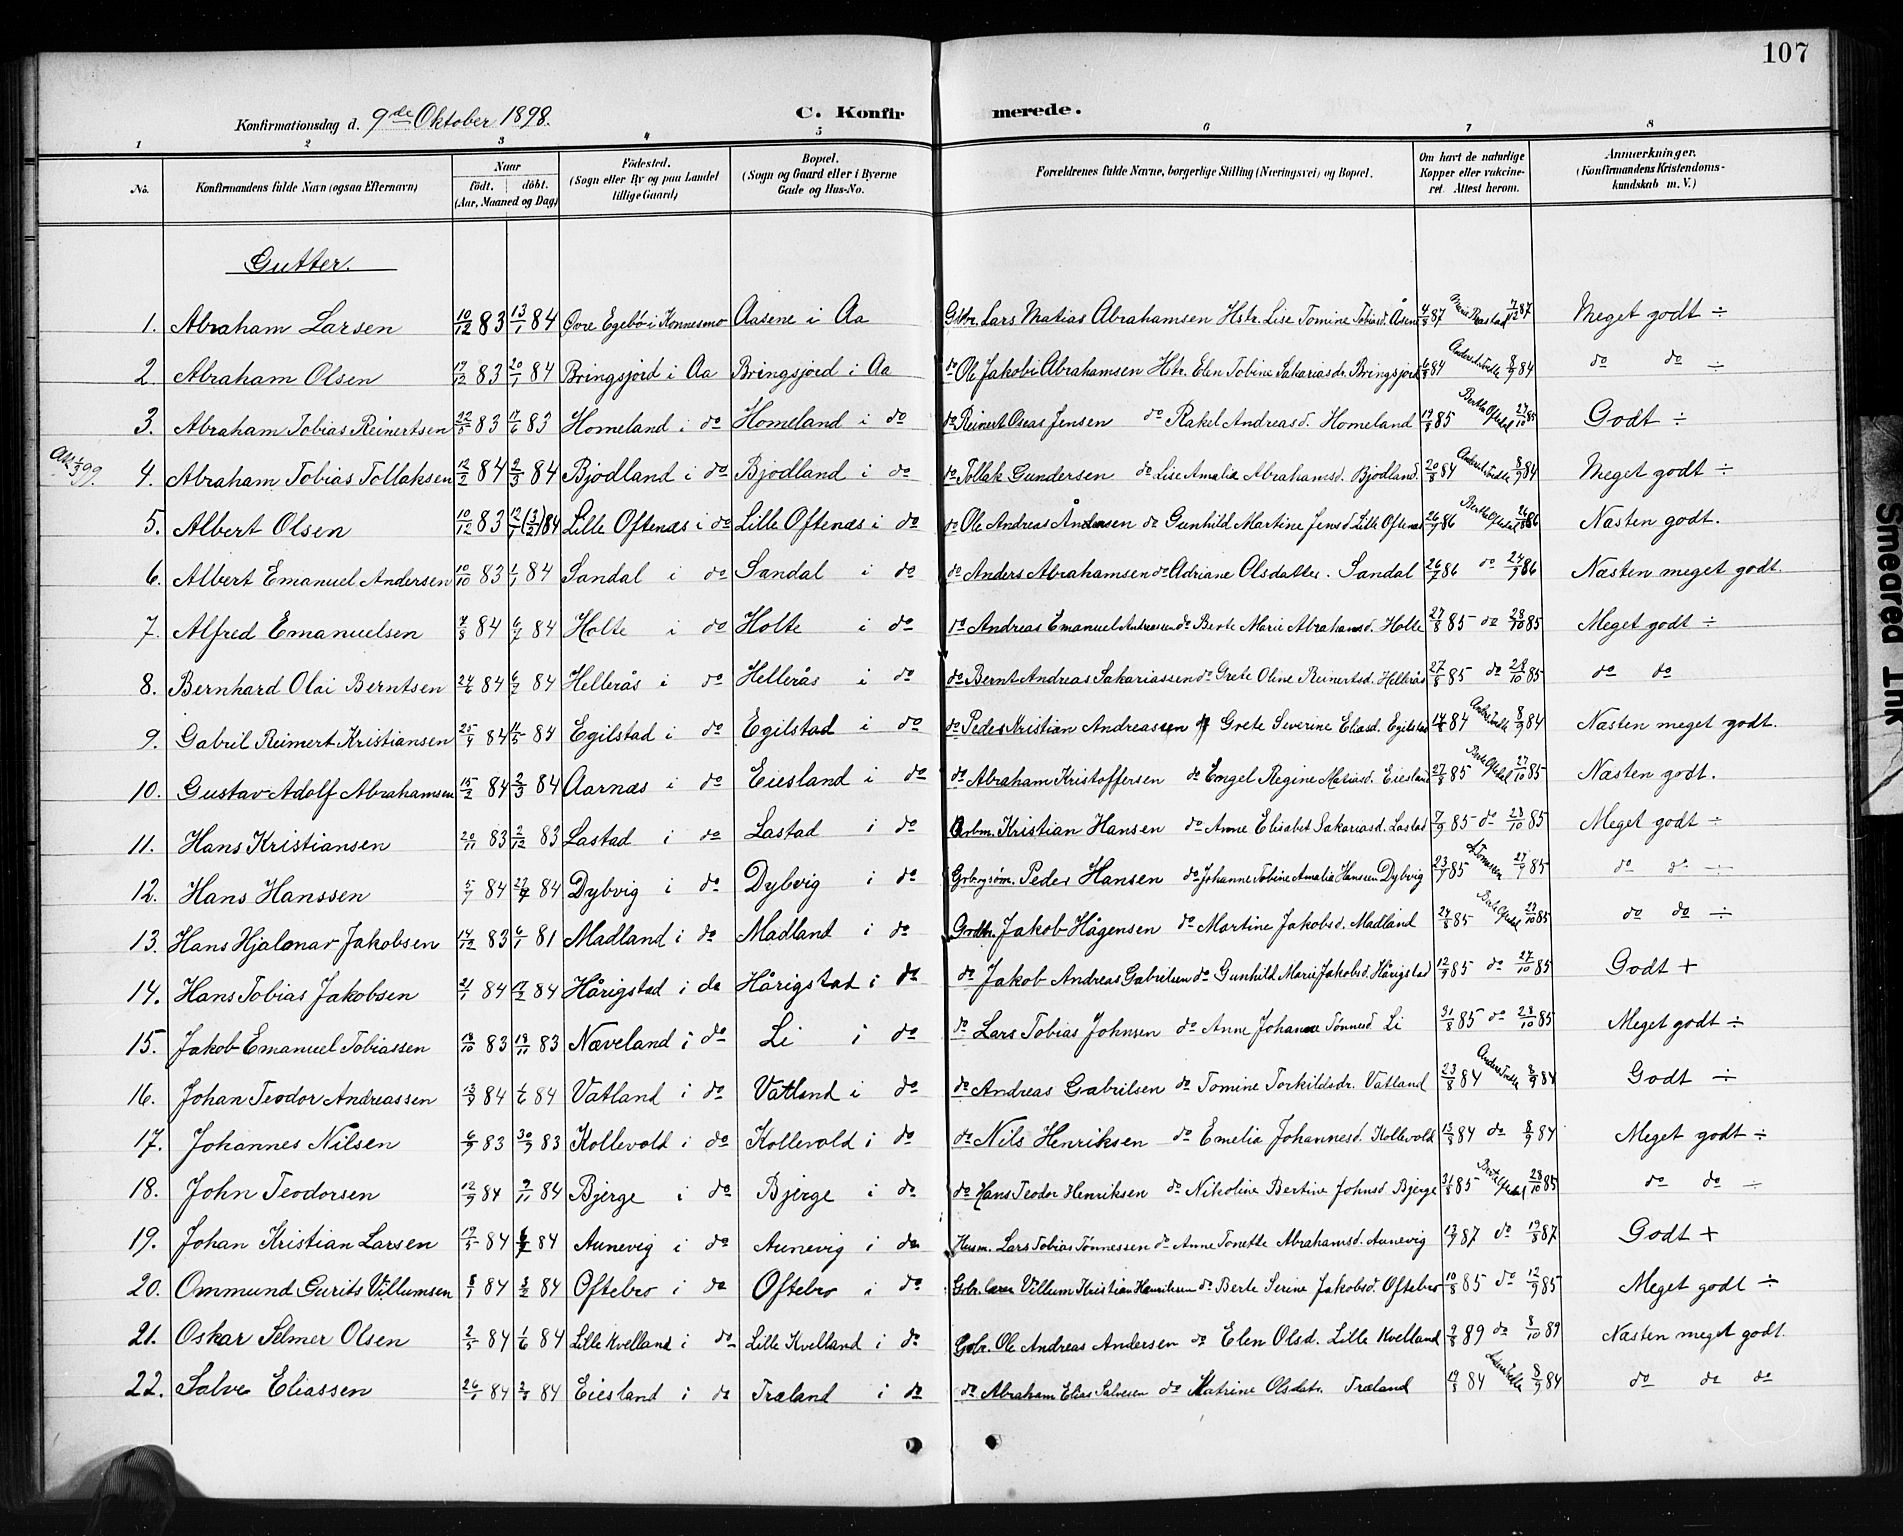 107
Konfirmationsdag d. 9de Oktober 1898. C. Konfirmerede.
1 2 3 4 5 6 7 8
No. Konfirmandens fulde Navn (ogsaa Efternavn) Naar født. døbt. (Aar, Maaned og Dag) Fødested. (Sogn eller By og paa Landet tillige Gaard) Bopæl. (Sogn og Gaard eller i Byerne Gade og Hus-No. Forældrenes fulde Navne, borgerlige Stilling (Næringsvei) og Bopæl. Om havt de naturlige Kopper eller vaccineret. Attest herom. Anmærkninger. (Konfirmandens Kristendomskundskab m. V.)
Gutter.
1. Abraham Larsen 10/12 83 13/1 84 Øvre Egebø i Konnesmo Aasene i Aa Lars Matias Abrahamsen Hstr. Lise Tomine Tobiasd. Åsene 4/8 87 7/12 87 Meget godt ÷
2. Abraham Olsen 17/12 83 20/1 84 Bringsjord i Aa Bringsjord i Aa do Ole Jakob Abrahamsen Hstr. Elen Tobine Sakariasdr. Bringsjord 6/8 84 8/9 84 do do ÷
3. Abraham Tobias Reinertsen 22/5 83 17/6 83 Homeland i do Homeland i do do Reinert Oseas Jensen do Rakel Andreasd. Homeland 19/8 85 27/10 85 Godt ÷
4. Abraham Tobias Tollaksen 12/2 84 2/3 84 Bjodland i do Bjodland i do do Tollak Gundersen do Lise Amalia Abrahamsd. Bjodland. 20/8 84 8/9 84 Meget godt ÷
5. Albert Olsen 10/12 83 12/1 (3/2) 84 Lille Oftenæs i do Lille Oftenæs i do do Ole Andreas do Gunhild Martine Jensd Lille Oftenæs 26/7 86 86 Næsten godt.
6. Albert Emanuel Andersen 10/10 83 1/1 84 Sandal i do Sandal i do do Anders Abrahamsen do Adriane Olsdatter. Sandal 26/7 86 do 24/9 86 Næsten meget godt.
7. Alfred Emanuelsen 84 84 Holte i do Holte i do do Andreas Emanuel Andreassen do Berte Marie Abrahamsd. Holte 27/8 85 do 28/10 85 Meget godt ÷
8. Bernhard Olai Berntsen 24/6 84 6/7 84 Hellerås i do Hellerås i do do Bernt Andreas Sakariassen do Grete Oline Reinertsd. Hellerås 27/8 85 do 28/10 85 do do
9. Gabril Reimert Kristiansen 84 84 Egilstad i do Egilstad i do do Peder Kristian Andreassen Grete Severine Eliasd. Egilstad 84 8/9 84 Næsten meget godt.
10. Gustav Adolf Abrahamsen 15/2 84 2/3 84 Aarnæs i do Eiesland i do do Abraham Kristoffersen do Engel Regine Matiasd. Eiesland 27/8 85 27/10 85 Næsten godt.
11. Hans Kristiansen 20/11 83 2/12 83 Lastad i do Lastad i do Arbm. Kristian Hansen do Anne Elisabet Sakariasd. Lastad 7/9 85 do 28/10 85 Meget godt ÷
12. Hans Hanssen 84 84 Dybvig i do Dybvig i do Peder Hansen do Johanne Tobine Amalia Hansen Dybvig 85 27/9 85 do do ÷
13. Hans Hjalmar Jakobsen 14/12 83 6/1 81 Madland i do Madland i do Jakob Hågensen do Martine Jakobsd. Madland 85 85 do do ÷
14. Hans Tobias Jakobsen 21/1 84 17/2 84 Hårigstad i do Hårigstad i do do Jakob Andreas Gabrielsen do Gunhild Marie Jakobsd. Hårigstad 12/9 85 do 27/10 85 Godt +
15. Jakob Emanuel Tobiassen 83 83 Næveland i do Li i do do Lars Tobias Johnsen do Anne Johanne Tønnesd Li 31/8 85 do 28/10 85 Meget godt ÷
16. Johan Teodor Andreassen 84 1/6 84 Vatland i do Vatland i do do Andreas Gabrilsen do Tomine Torkildsdr. Vatland 23/8 84 8/9 84 Godt ÷
17. Johannes Nilsen 6/9 83 30/9 83 Kollevold i do Kollevold i do do Nils Henriksen do Emelia Johannesd. Kollevold 84 do 8/9 84 Meget godt ÷
18. John Teodorsen 12/9 84 9/11 84 Bjerge i do Bjerge i do do Hans Teodor Henriksen do Nikoline Bertine Johnsd Bjerge 31/8 85 28/10 85 do do ÷
19. Johan Kristian Larsen 84 84 Aunevig i do Aunevig i do Husm. Lars Tobias Tønnessen do Anne Tonette Abrahamsd. Aunevig 87 do 87 Godt +
20. Ommund Gurits Villumsen 84 84 Oftebro i do Oftebro i do Villum Kristian Henriksen do Berte Serine Jakobsd. Oftebro 10/8 85 do 12/9 85 Meget godt ÷
21. Oskar Selmer Olsen 2/5 84 1/6 84 Lille Kvelland i do Lille Kvelland i do Ole Andreas Andersen do Elen Olsd. Lille Kvelland 89 do 8/10 89 Næsten meget godt.
22. Salve Eliassen 26/1 84 84 Eiesland i do Træland i do do Abraham Elias Salvesen do Katrine Olsdatr. Træland 84 8/9 84 do do do
Smeared Ink